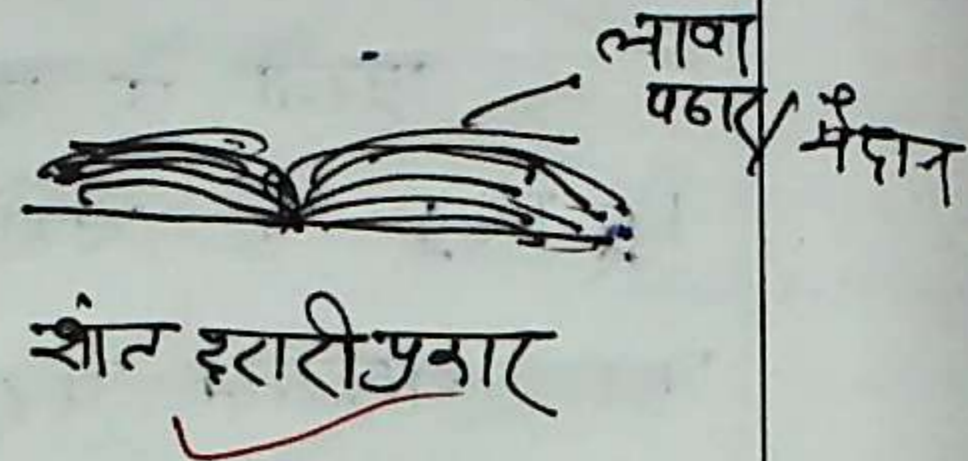 लावा
पठार/ मैदान
शांत दरारी प्रकार